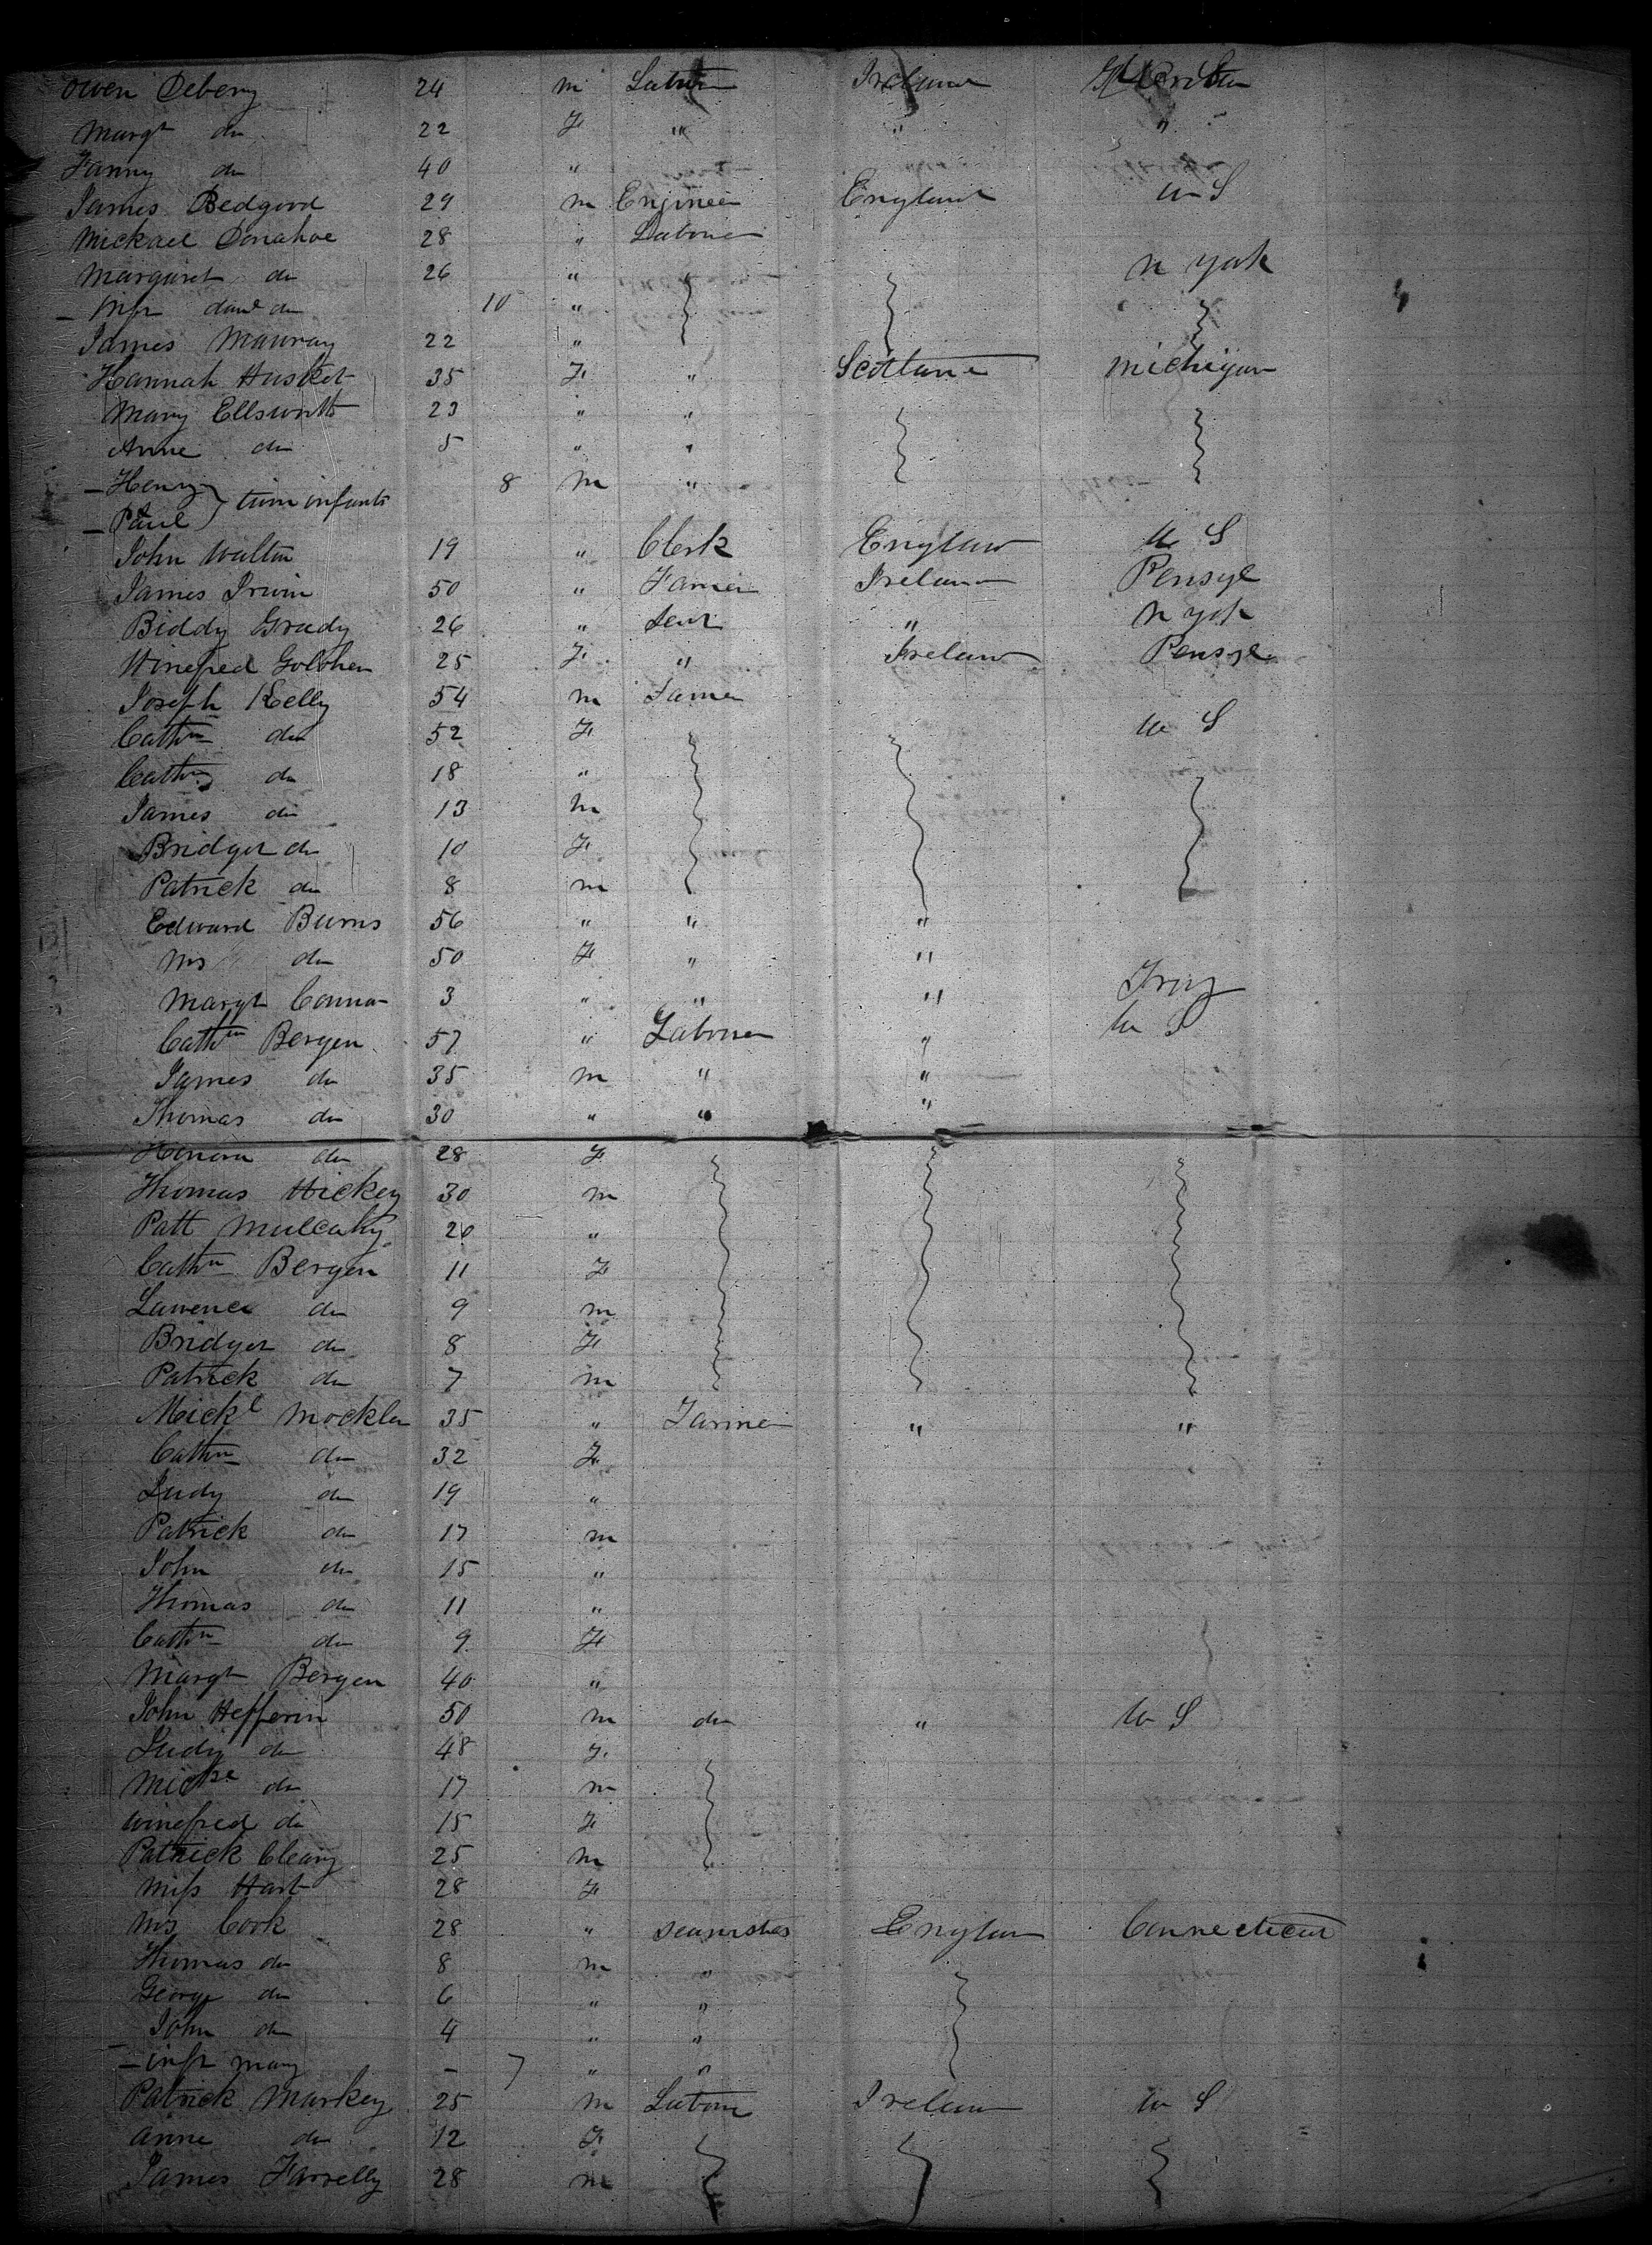 Owen Debeny 24 m Labour Ireland
Margt do 22 F " " "
Fanny do 40 "
James Bedgood 29 m Engineer England U S
Mickael Donahoe 28 " Labourer
Margaret do 26 " N York
Inft do 10 "
James Mauvay 22 "
Hannah Husket 35 F " Scotland Michigan
Mary Ellsworth 23 " "
Anne do 5 " "
Henry } twin infants 8 m "
Paul
John Walton 19 " Clerk England U S
James Irwin 50 " Farmer Ireland Pensyl
Biddy Grady 26 " Servt " N York
Winefred 25 F " Ireland Pensyl
Joseph Kelly 54 m Farmer
Cathn do 52 F U S
Cathn do 18 "
James do 13 m
Bridget do 10 F
Patrick do 8 m
Edward Burns 56 " " "
Mrs do 50 F " "
Margt Connor 3 " " " Troy
Cathn Bergen 57 " Labourer " U S
James do 35 m " "
Thomas do 30 " " "
Honora do 28 F
Thomas Hickey 30 m
Patt Mulcahy 20 "
Cathn Bergen 11 F
Lawrence do 9 m
Bridget do 8 F
Patrick do 7 m
Mickl Mockler 35 " Farmer " "
Cathn do 32 F
Judy do 19 "
Patrick do 17 m
John do 15 "
Thomas do 11 "
Cathn do 9 F
Margt Bergen 40 "
John Hefferin 50 m do " U S
Judy do 48 F
Mickl do 17 m
Winefred do 15 F
Patrick Cleary 25 m
Miss Hart 28 F
Mrs Cook 28 " Seamstres England Connecticut
Thomas do 8 m "
George do 6 " "
John do 4 " "
inft Mary - 7 " "
Patrick Markey 25 m Labour Ireland U S
Anne do 12 F
James Farrelly 28 m